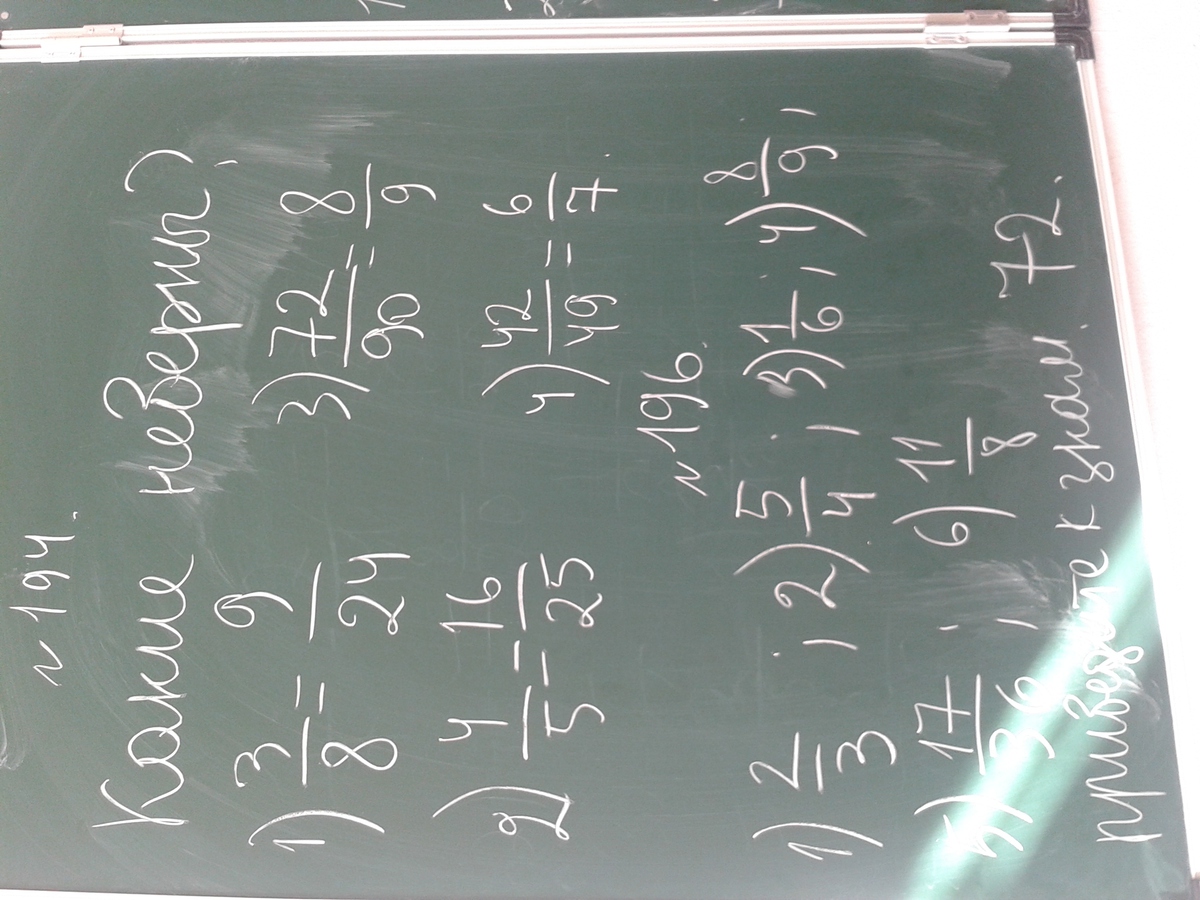 № 194.
Какие неверны?
1) 3/8 = 9/24 3) 72/90 = 8/9
2) 4/5 = 16/25 4) 42/49 = 6/7.
№ 196.
1) 2/3; 2) 5/4; 3) 1/6; 4) 8/9;
5) 17/36; 6) 11/8
приведите к знам. 72.